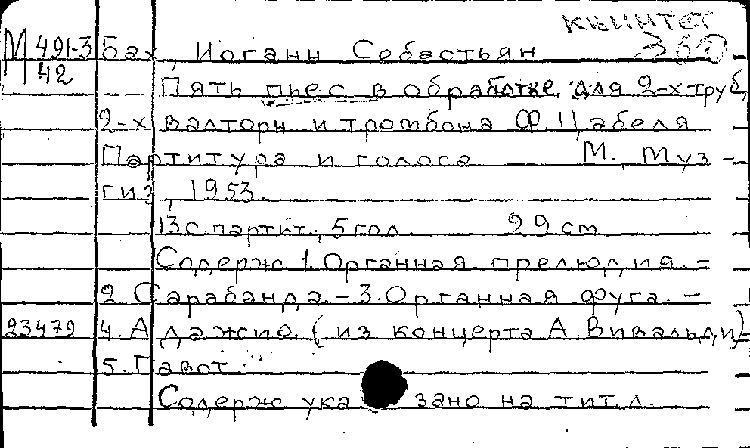 квинтет
М 491-3 Бах, Иоганн Себестьян
42
Пять пьес в обработке для 2-х труб,
2-х валторн и тромбона Ф. Цабеля
Партитура и голоса — М., Муз-
гиз, 1953.
13 с. партит., 5 гол. 29 см
Содерж. 1. Органная прелюдия. –
2. Сарабанда. – 3. Органная фуга. –
23479 4. Адажио (из концерта А. Вивальди) –
5. Гавот.
Содерж указано на тит. л.